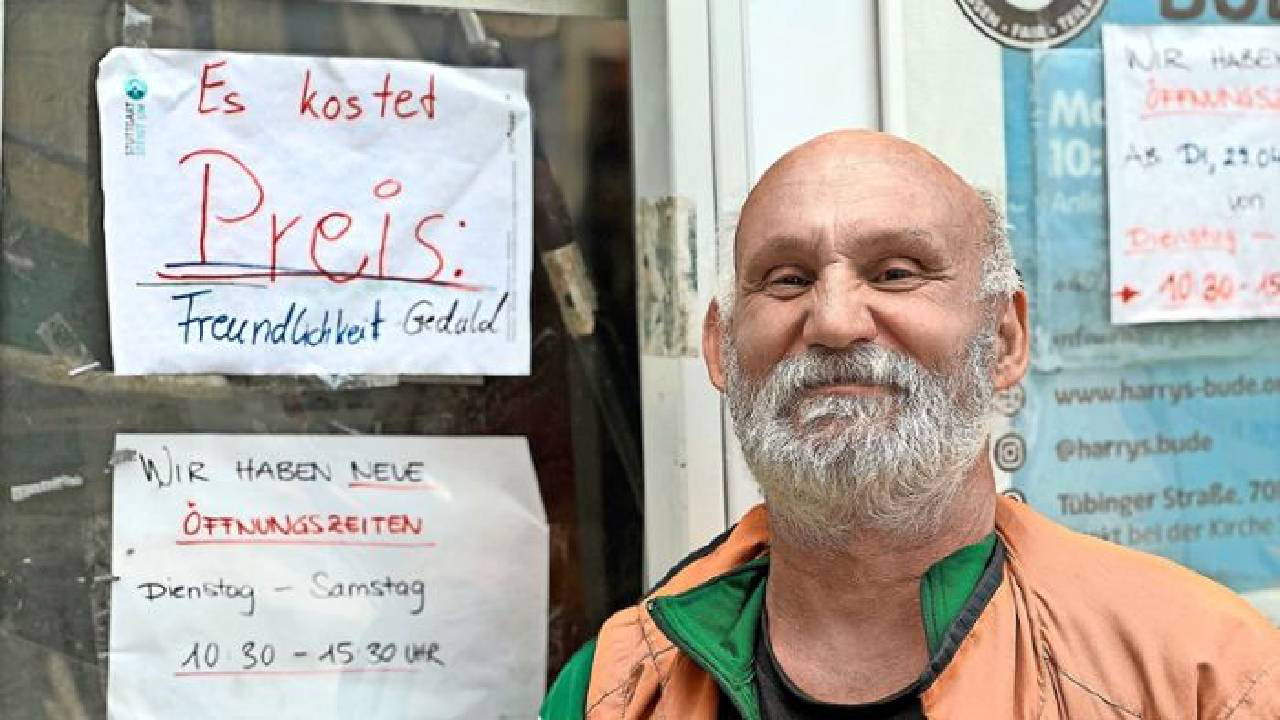 STUTTGART
Es kostet
Preis:
Freundlichkeit Gedald
WIR HABEN NEUE
ÖFFNUNGSZEITEN
Dienstag - Samstag
10:30 - 15:30 UHR
FAIR
WIR HABEN
ÖFFNUNGSZ
AB DI, 29.04
von
Dienstag -
→ 10:30-15
Mo
10:
www.harrys-bude.o
@harrys.bude
Tübinger Straße, 70
kt bei der Kirche